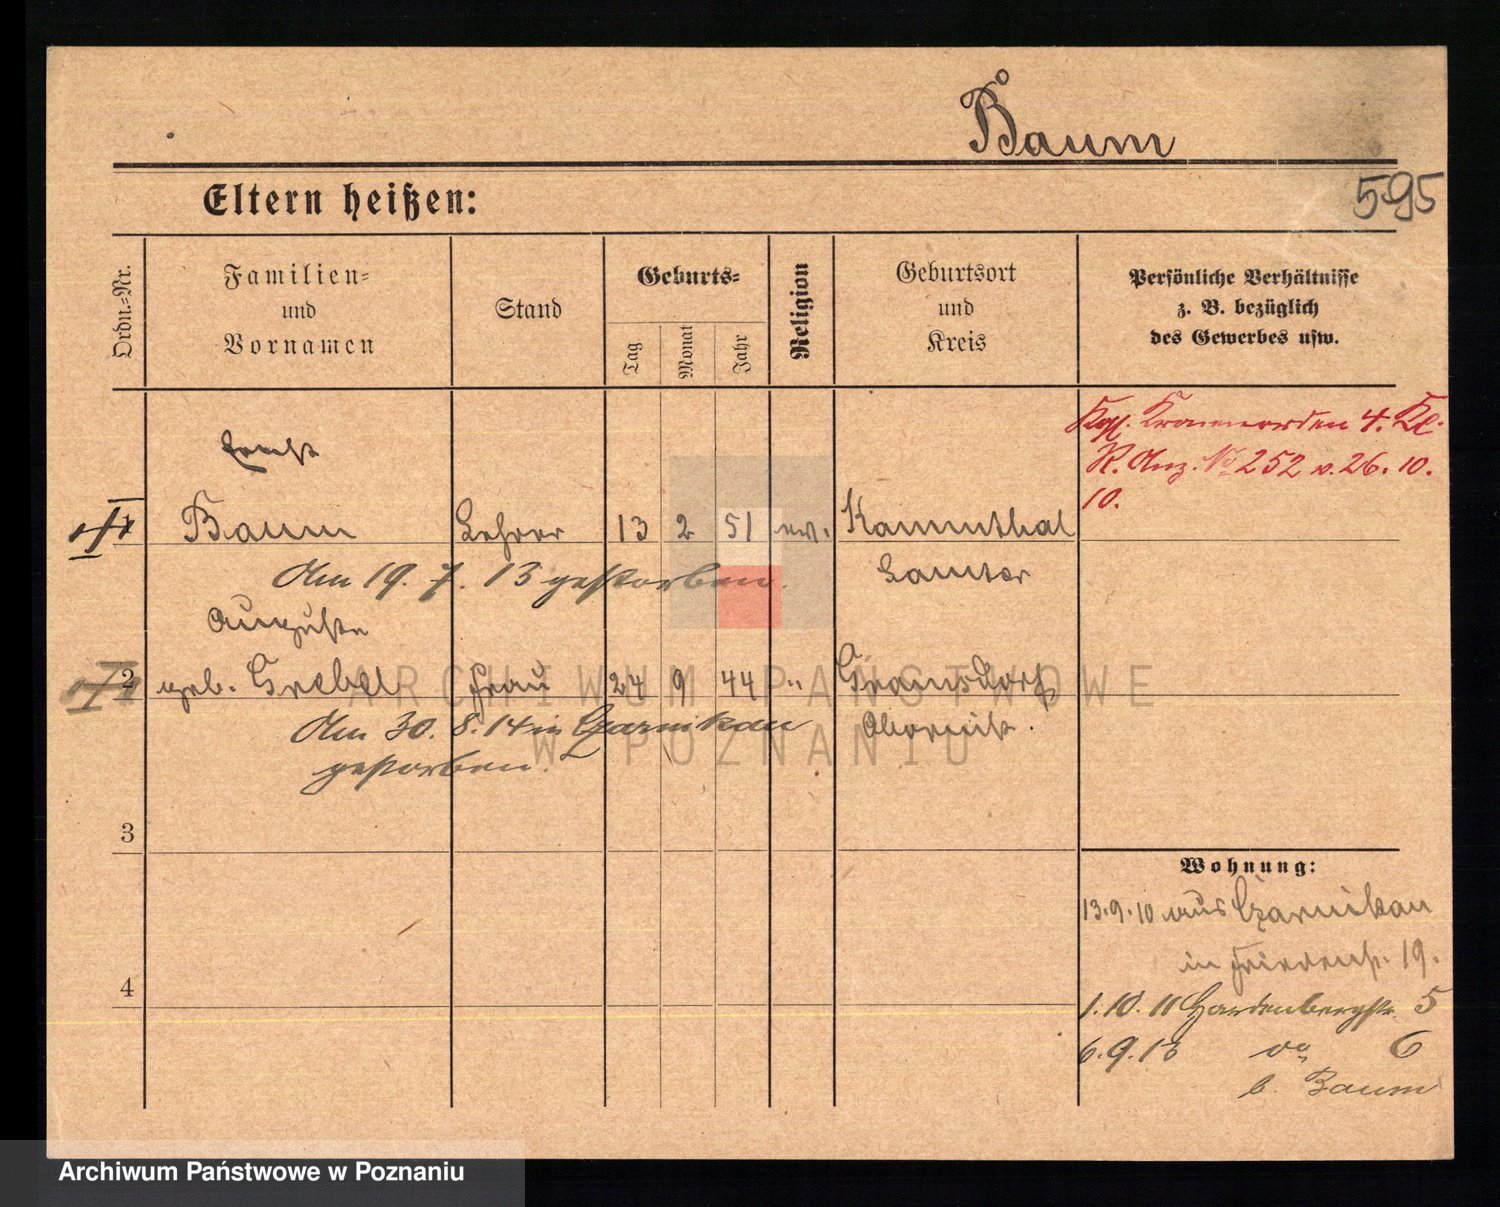 Baum
595
Eltern heißen:
Ordn.-Nr.
Familien-
und
Vornamen
Stand
Geburts-
Tag
Monat
Jahr
Religion
Geburtsort
und
Kreis
Persönliche Verhältnisse
z. B. bezüglich
des Gewerbes usw.
Kgl. Kronenorden 4. Kl.
R. Anz. No 252 v. 26. 10.
10.
Ernst
1 Baum Lehrer 13 2 51 ev.
Samter
Am 19. 7. 13 gestorben.
Auguste
2 geb. Grebel Frau 24 9 44 "
Obornik.
Am 30. 8. 14 in Czarnikau
gestorben.
3
4
Wohnung:
13.9.10 aus Czarnikau
in Friedenst. 19.
1. 10. 11 Hardenbergstr. 5
6. 9. 13 do 6
b. Baum
ARCHIWUM PAŃSTWOWE
W POZNANIU
Archiwum Państwowe w Poznaniu